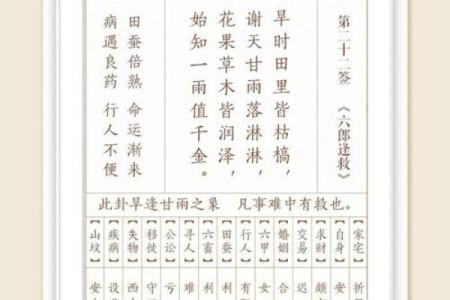 第二十二签 《六郎逢救》
旱时田里皆枯槁，
谢天甘雨落淋淋，
花果草木皆润泽，
始知一雨值千金。
田蚕倍熟 命运渐来
病遇良药 行人不便
此卦旱逢甘雨之象 凡事难中有救也。
【家宅】
【自身】安
【求财】颇
【交易】迟
【婚姻】合
【六甲】女
【行人】有
【田蚕】利
【六畜】利
【寻人】难
【公讼】亏
【移徙】守
【失物】西
【疾病】设
【山坟】安